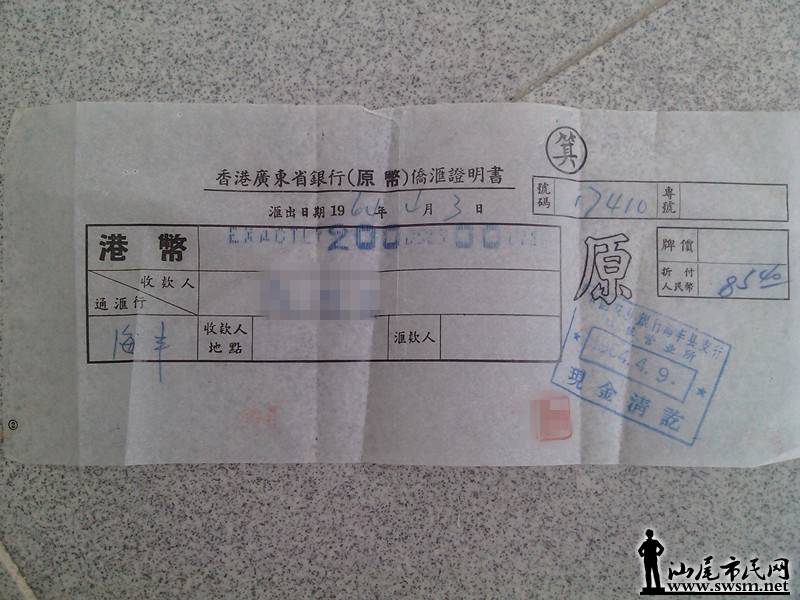 箕
香港廣東省銀行(原幣)僑滙證明書
滙出日期 1964年 4月 3日
號碼 17410 專號
港幣
EXACTLY 200 00
收款人
通滙行
海丰
收款人地點
滙款人
原
牌價
折付人民幣 8540
1964.4.9.
現金清訖
②
汕尾市民网
www.swsm.net